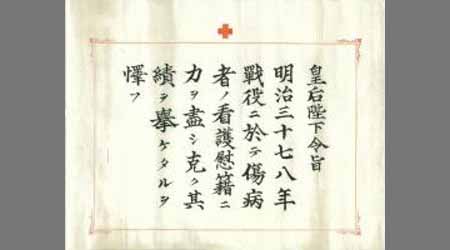 皇后陛下令旨
明治三十七八年
戰役ニ於テ傷病
者ノ看護慰籍ニ
力ヲ盡シ克ク其
績ヲ擧ケタルヲ
懌フ